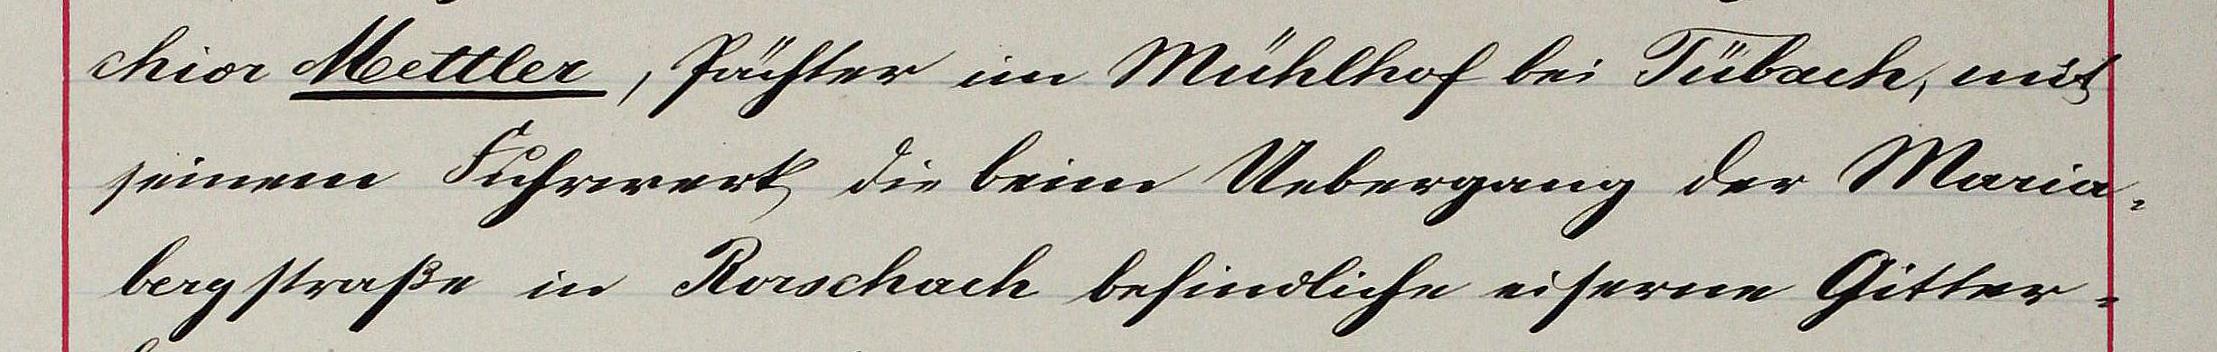 chior Mettler, Pächter im Mühlhof bei Tübach, mit
seinem Fuhrwerk die beim Uebergang der Maria-
bergstraße in Rorschach befindliche eiserne Gitter-